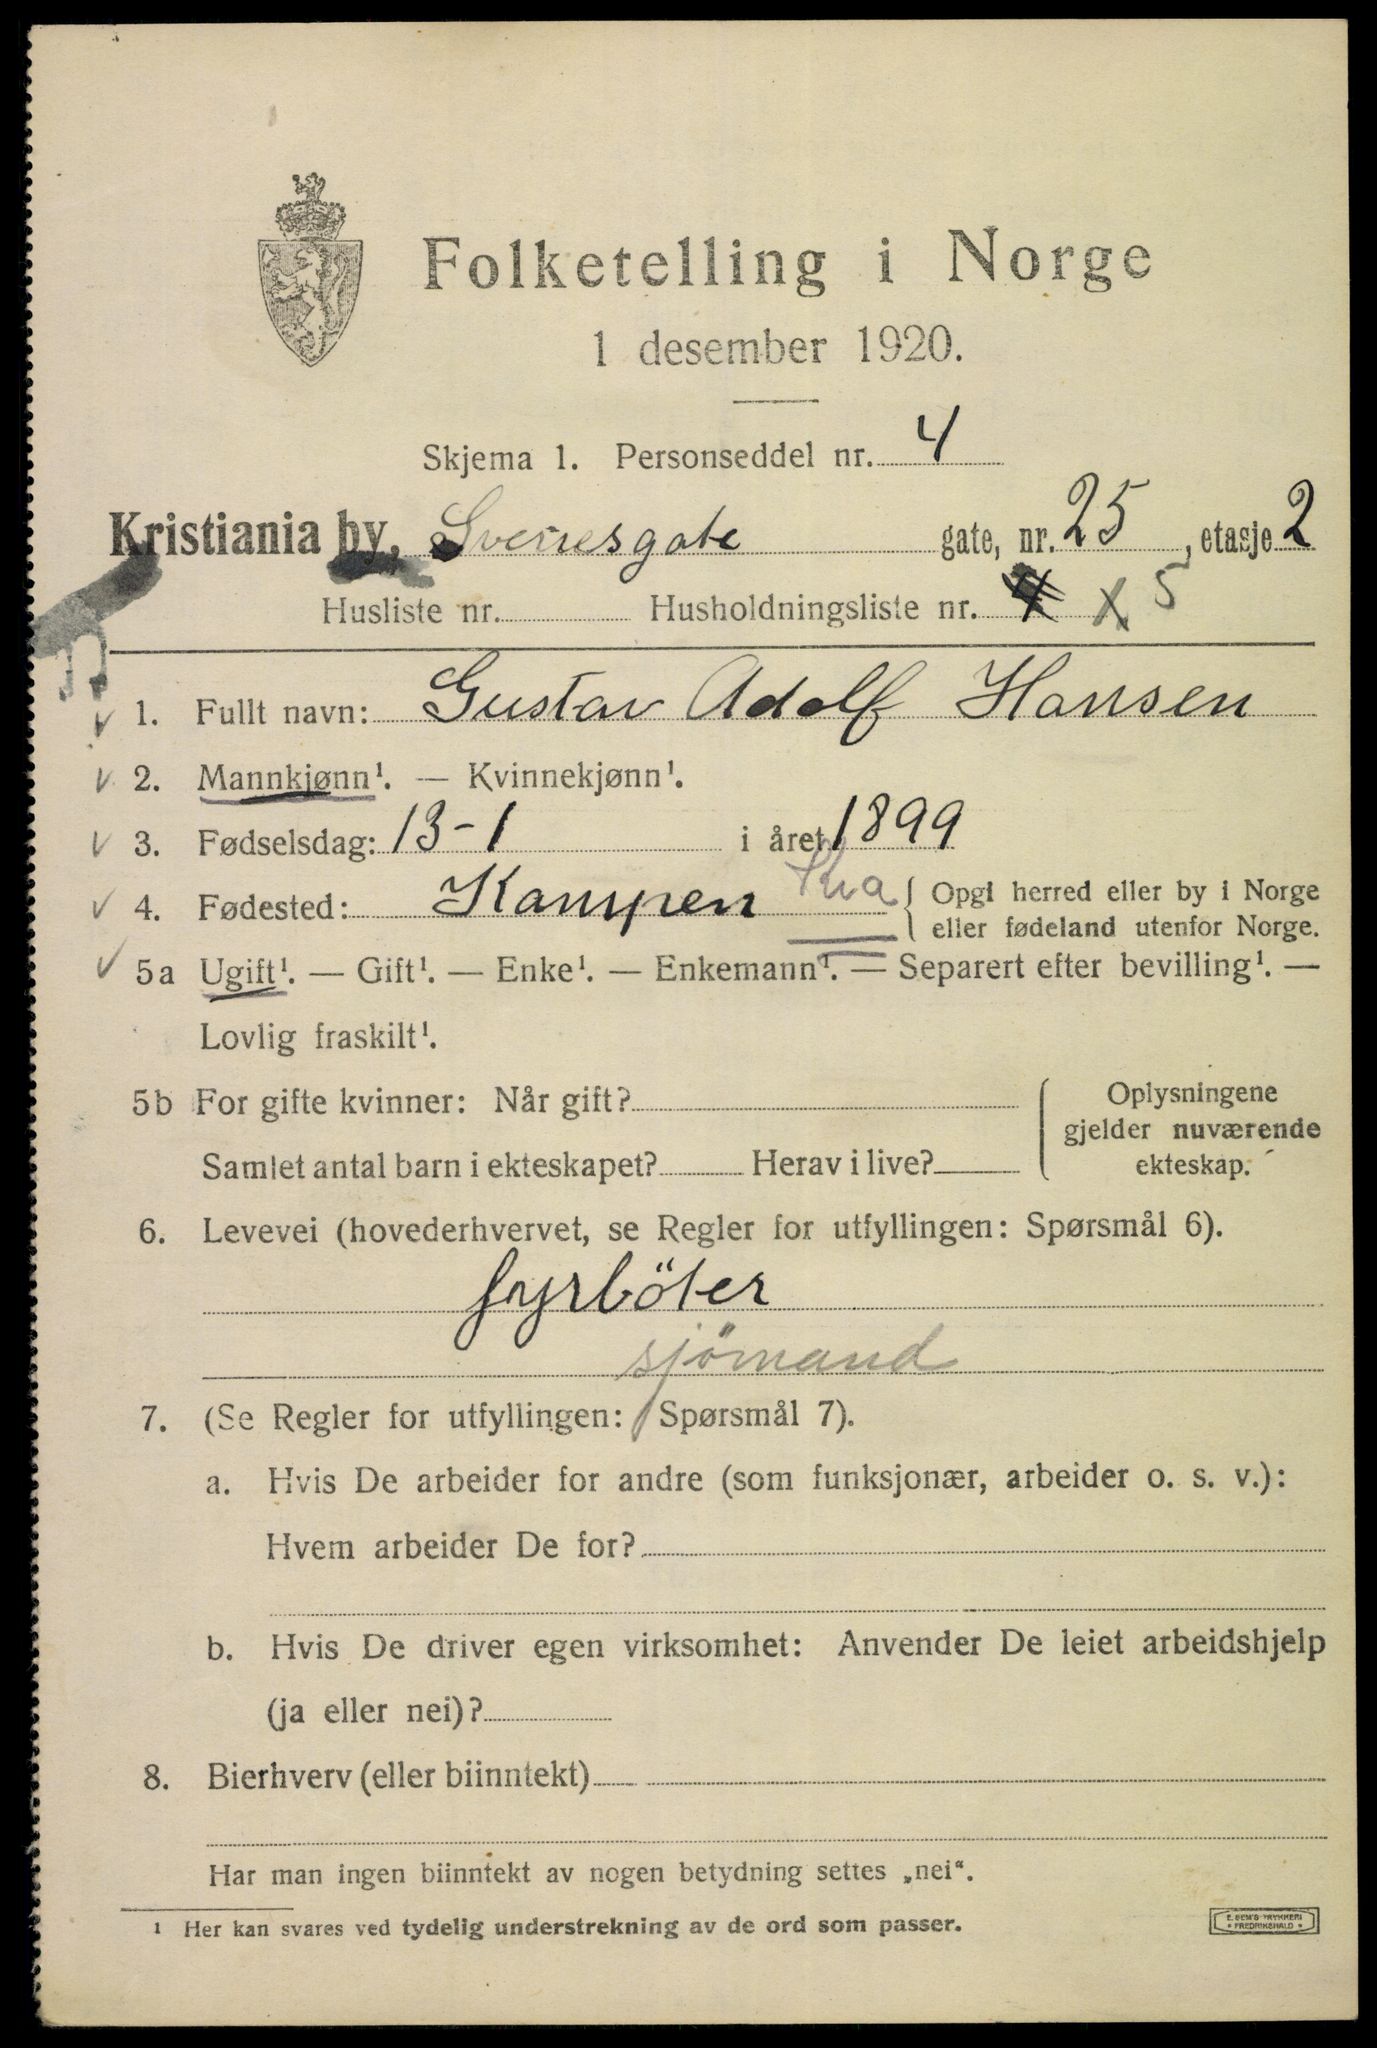 Folketelling i Norge
1 desember 1920.
Skjema 1. Personseddel nr. 4
Kristiania by, Sverresgate gate, nr. 25, etasje 2
Husliste nr. Husholdningsliste nr. 4 X 5
1. Fullt navn: Gustav Adolf Hansen
2. Mannkjønn¹. — Kvinnekjønn¹.
3. Fødselsdag: 13-1 i året 1899
4. Fødested: Kampen Kra { Opgi herred eller by i Norge
eller fødeland utenfor Norge.
5a Ugift¹. — Gift¹. — Enke¹. — Enkemann¹. — Separert efter bevilling¹. —
Lovlig fraskilt¹.
5b For gifte kvinner: Når gift?
Samlet antal barn i ekteskapet? Herav i live?
Oplysningene
gjelder nuværende
ekteskap.
6. Levevei (hovederhvervet, se Regler for utfyllingen: Spørsmål 6).
fyrböter
sjömand
7. (Se Regler for utfyllingen: Spørsmål 7).
a. Hvis De arbeider for andre (som funksjonær, arbeider o. s. v.):
Hvem arbeider De for?
b. Hvis De driver egen virksomhet: Anvender De leiet arbeidshjelp
(ja eller nei)?
8. Bierhverv (eller biinntekt)
Har man ingen biinntekt av nogen betydning settes „nei“.
¹ Her kan svares ved tydelig understrekning av de ord som passer.
E. SEM'S TRYKKERI
FREDRIKSHALD